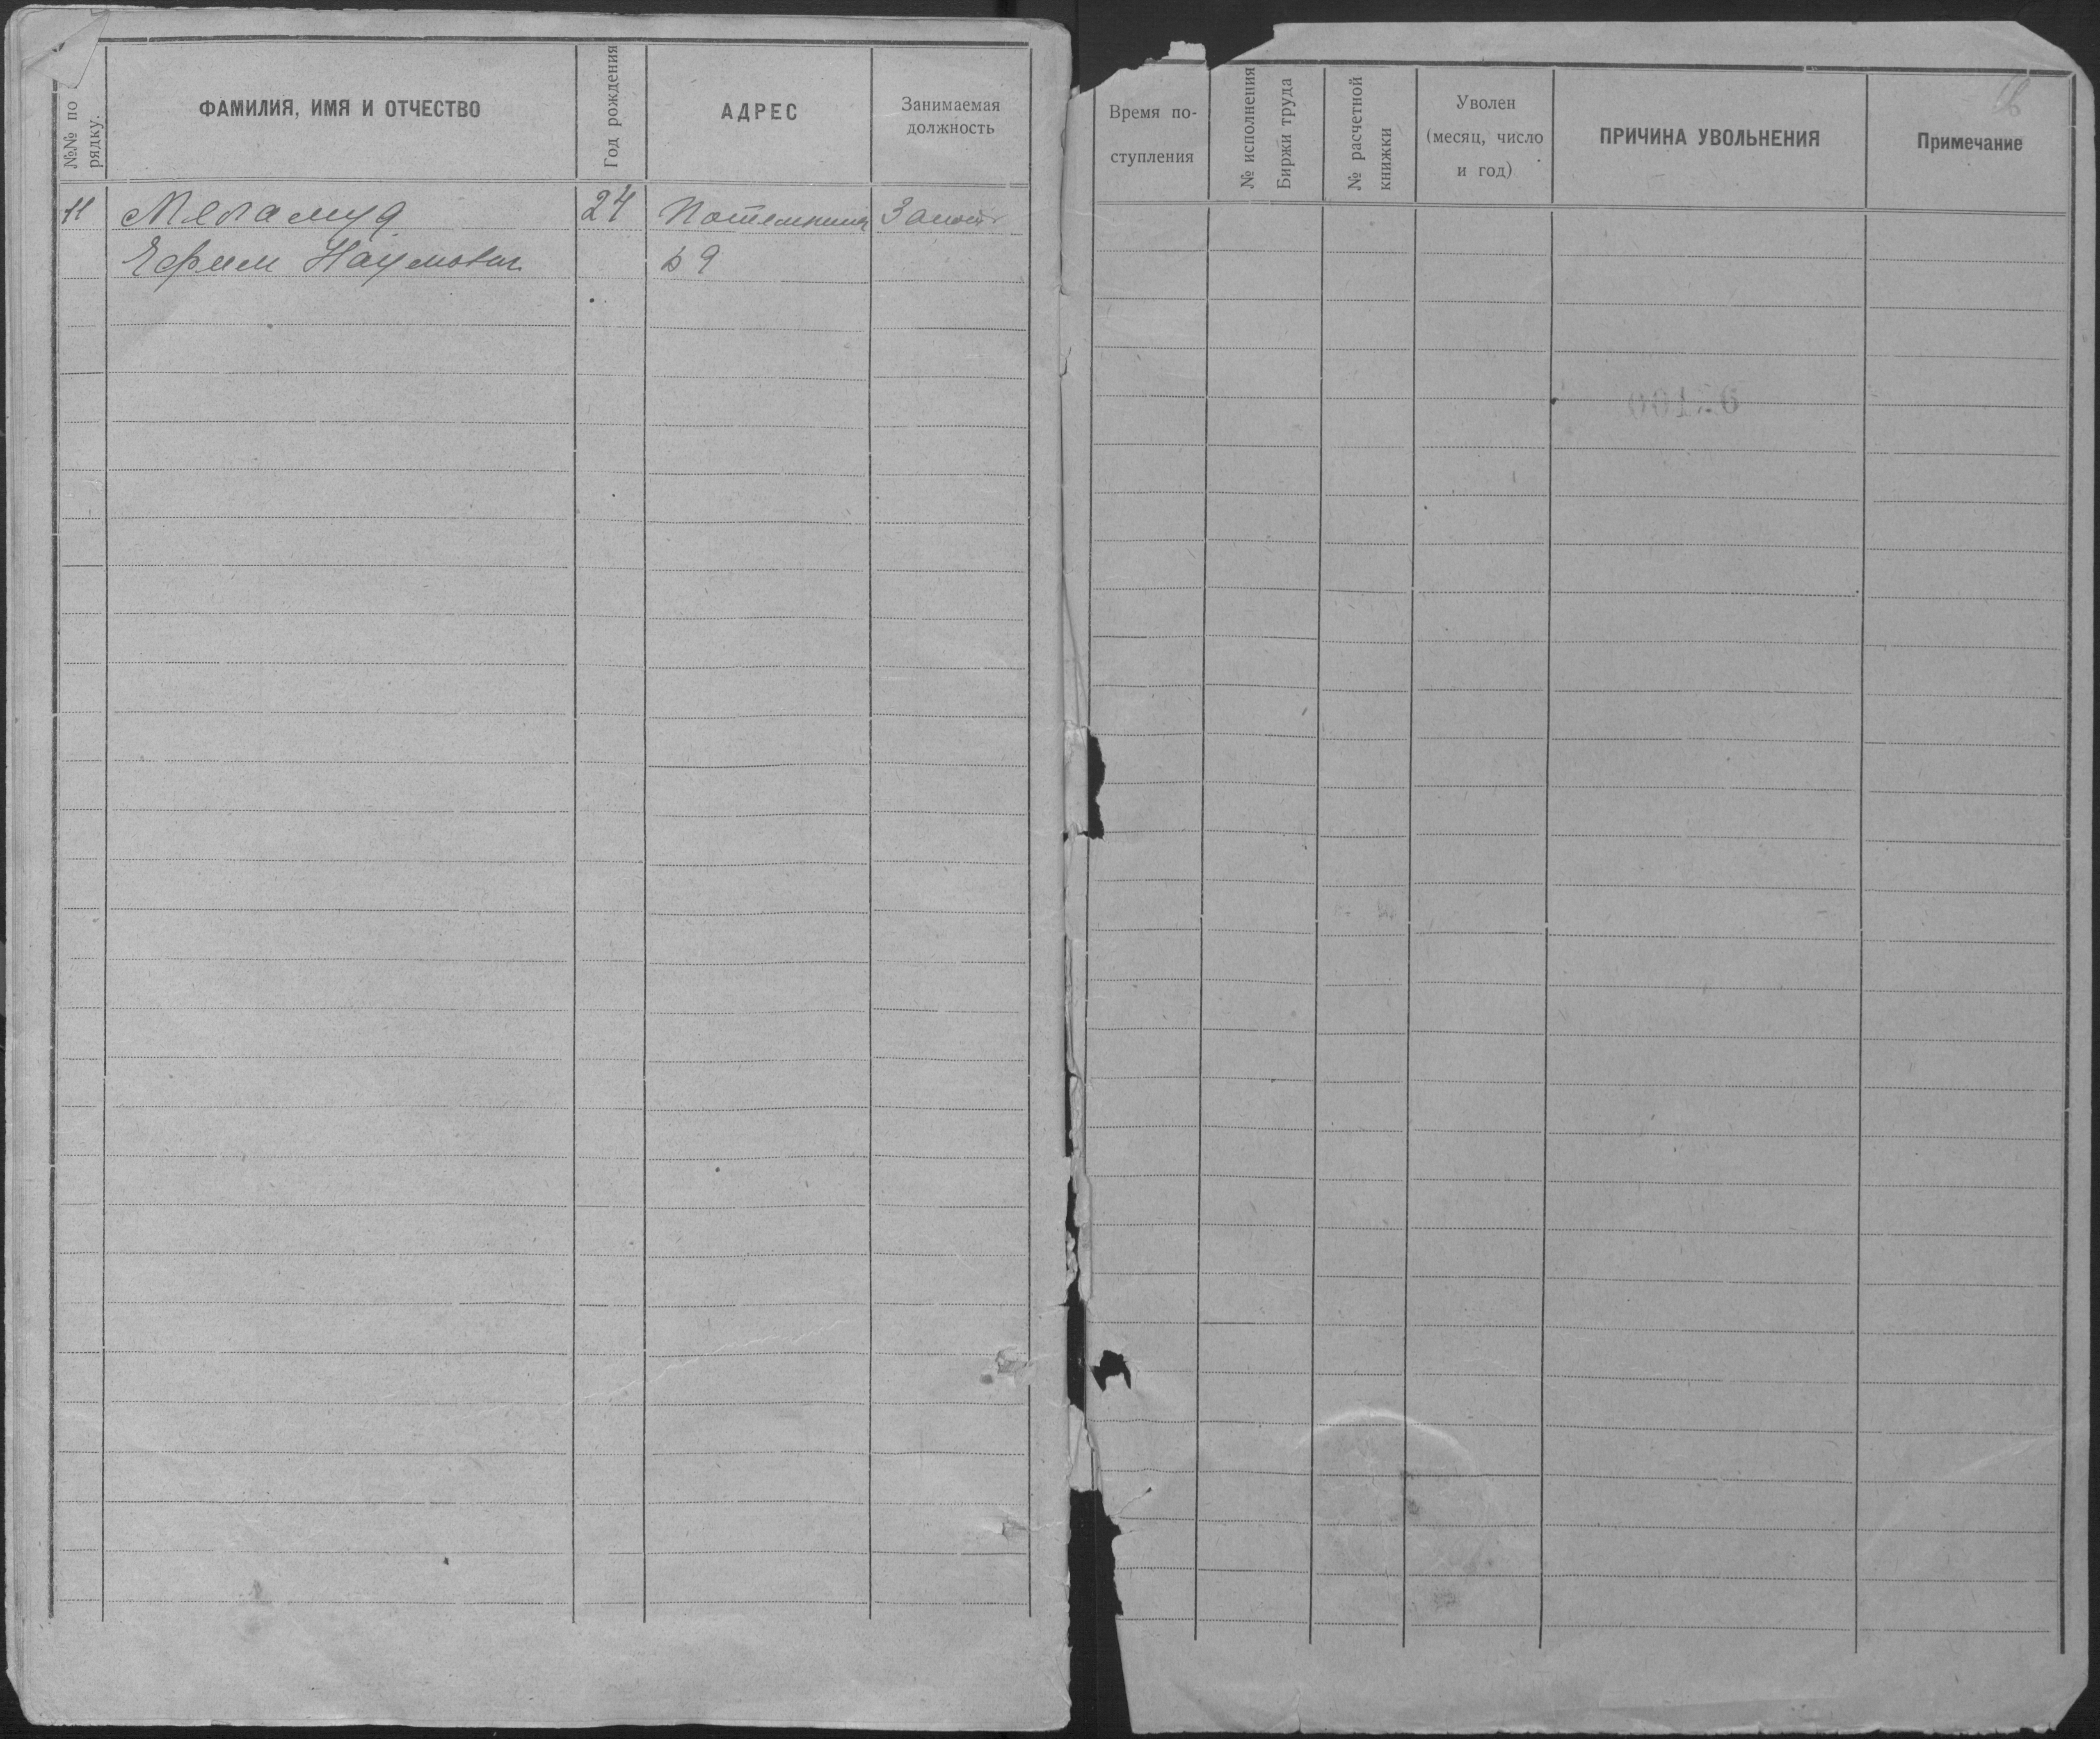 №№ по рядку.
ФАМИЛИЯ, ИМЯ И ОТЧЕСТВО
Год рождения
АДРЕС
Занимаемая
должность
Время по-
ступления
№ исполнения
Биржи труда
№ расчетной
книжки
Уволен
(месяц, число
и год)
ПРИЧИНА УВОЛЬНЕНИЯ
Примечание
11 Меламуд 24
Ефим Наумович